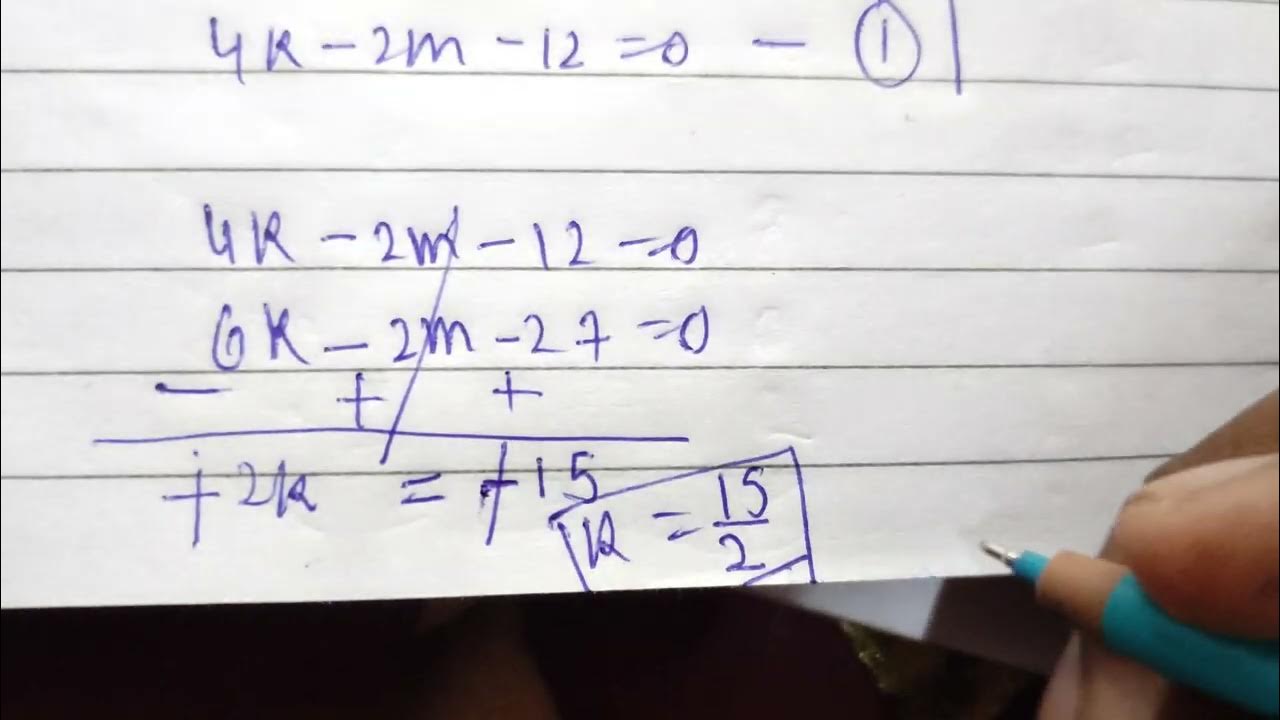 4k - 2m - 12 = 0 - ①
4k - 2m - 12 = 0
6k - 2m - 27 = 0
- + +
+2k = +15
k = 15/2